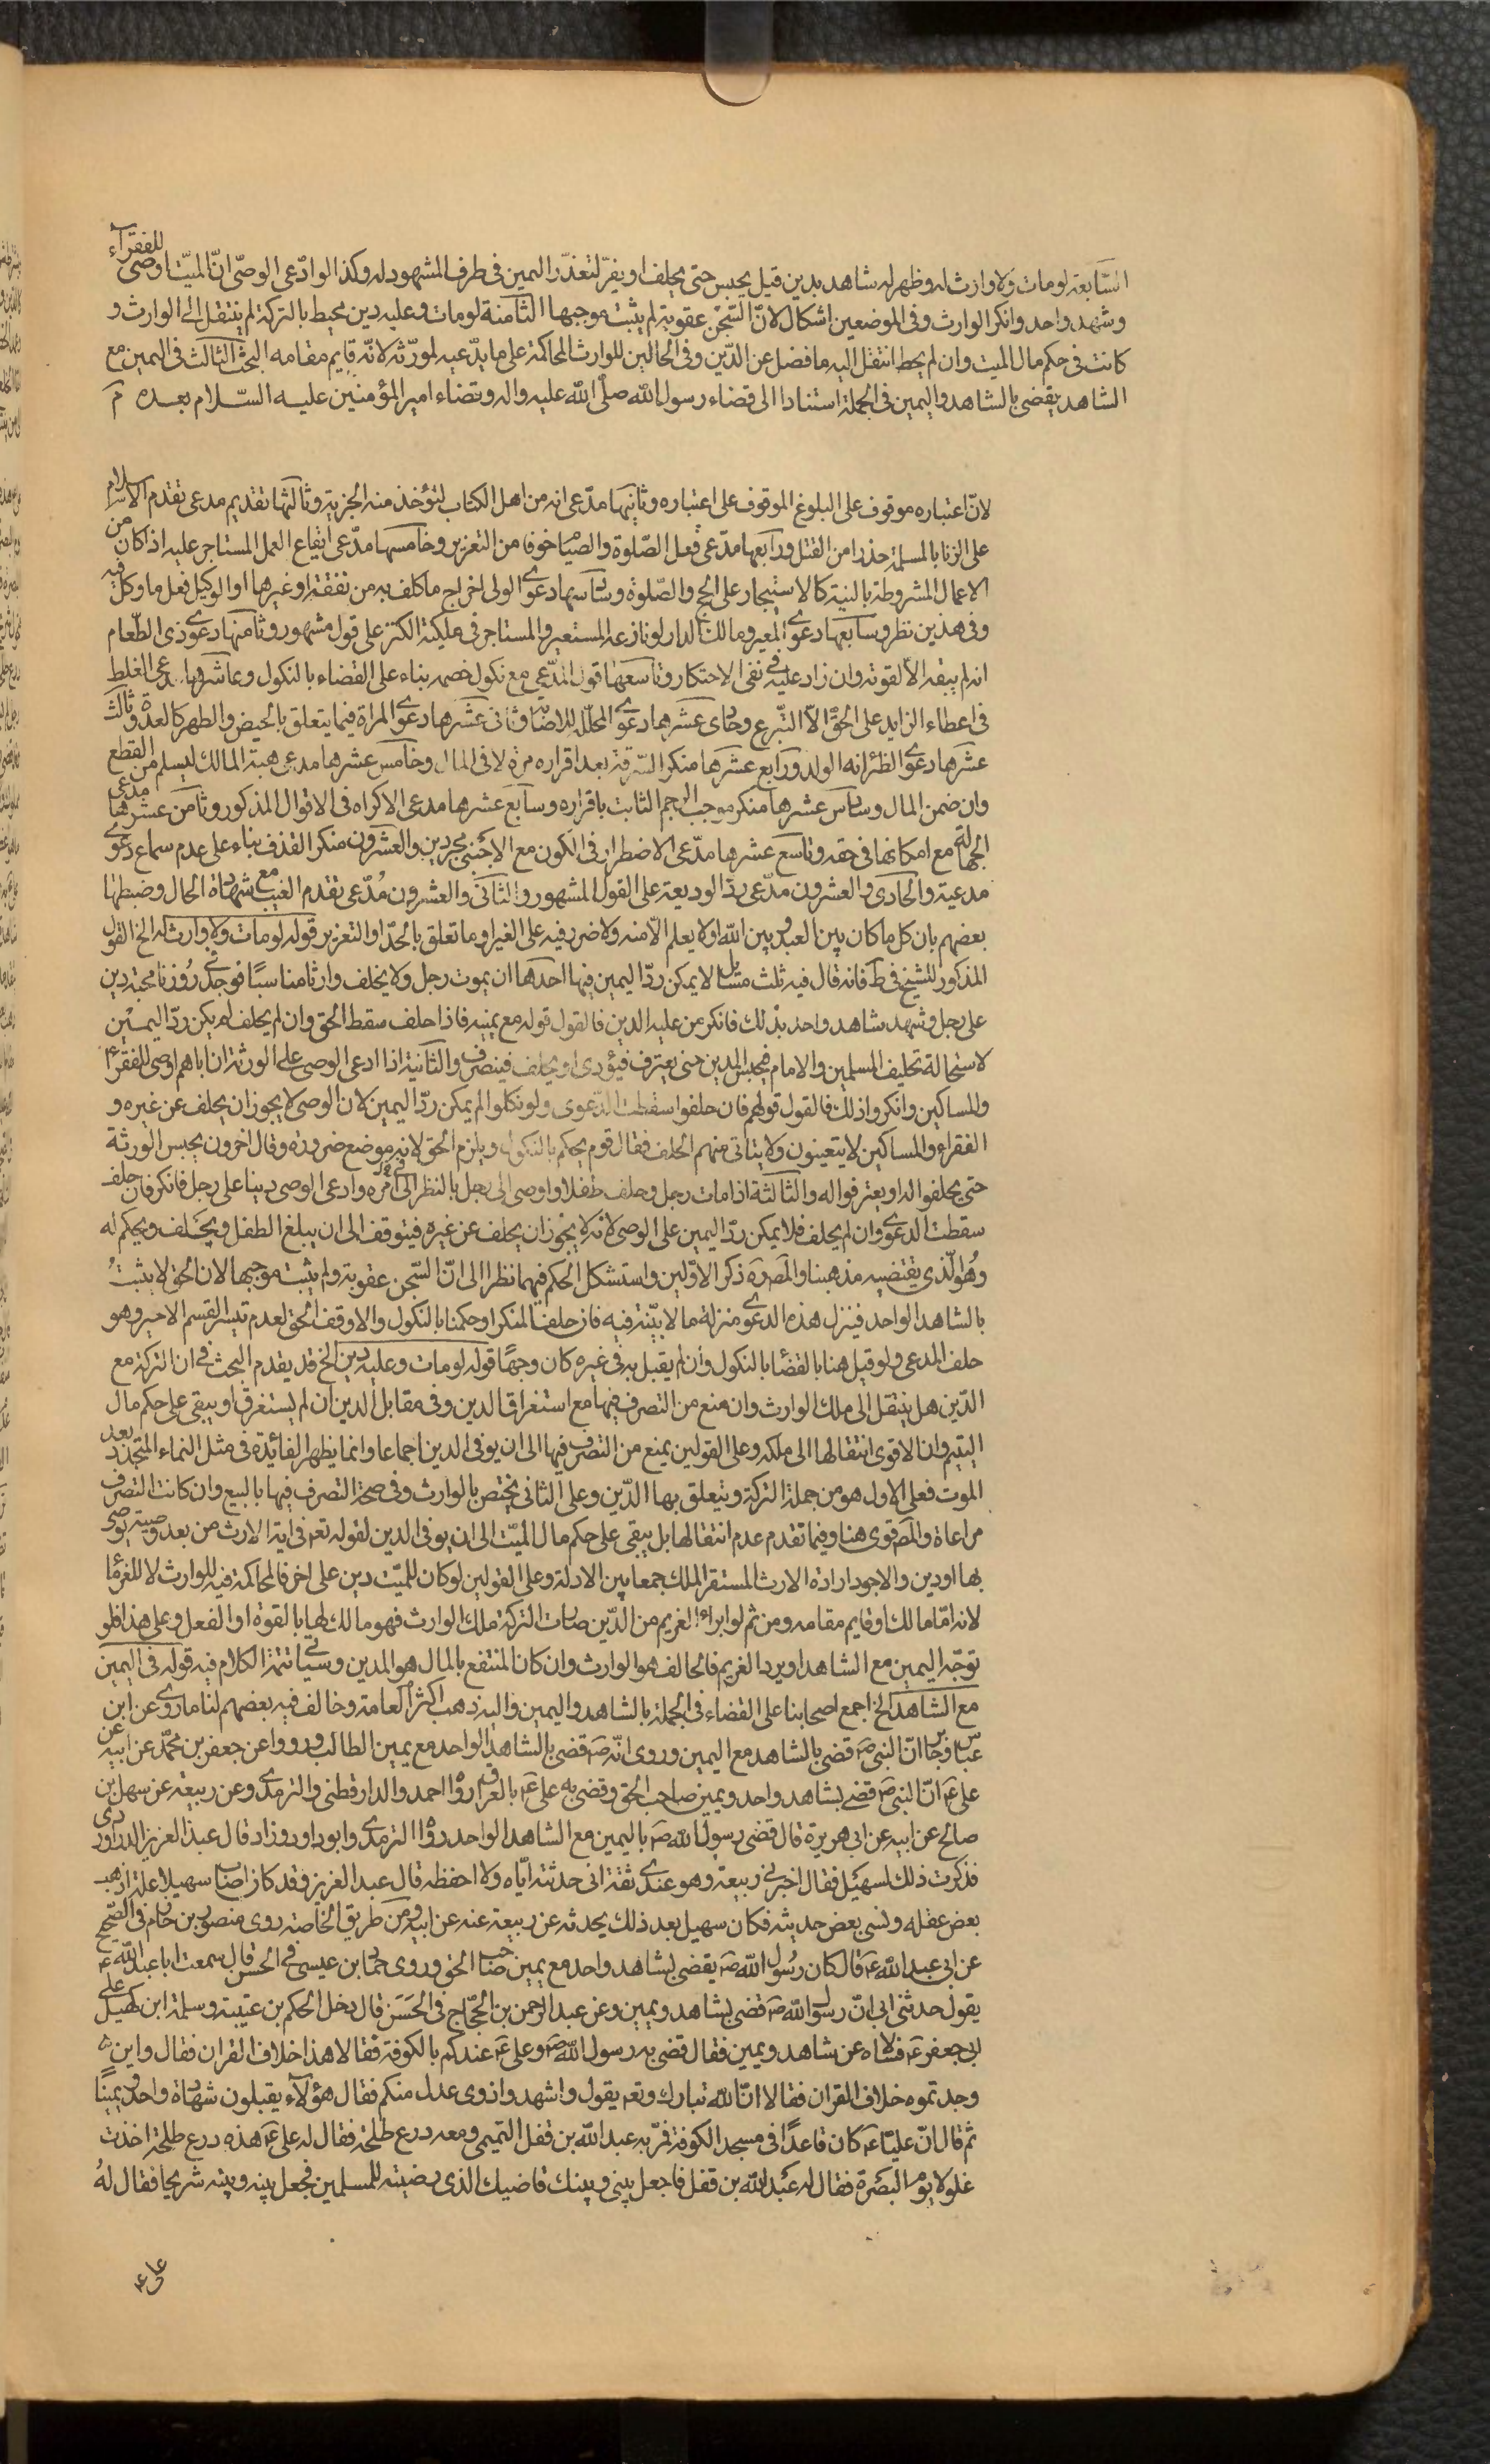 السّابعة لو مات ولا وارث له وظهر له شاهد بدين قيل يحبس حتى يحلف او يقرّ لتعذّر اليمين فى طرف المشهود له وكذا لو ادّعى الوصىّ انّ الميّت اوصى للفقرآء
وشهد واحد وانكر الوارث وفى الموضعين اشكال لانّ السّجن عقوبة لم يثبت موجبها الثّامنة لو مات وعليه دين يحيط بالتركة لم ينتقل الى الوارث و
كانت فى حكم مال الميت وان لم يحط انتقل اليه ما فضل عن الدّين وفى الحالين للوارث المحاكمة على ما يدّعيه لمورّثه لانّه قايم مقامه البحث الثالث فى اليمين مع
الشاهد يقضى بالشاهد واليمين فى الجملة استنادا الى قضاء رسول الله صلّى الله عليه واله وقضاء امير المؤمنين عليه السّلام بعده م
لانّ اعتباره موقوف على البلوغ الموقوف على اعتباره وثانيها مدّعى انه من اهل الكتاب لتؤخذ منه الجزية وثالثها تقديم مدعى تقدم الاسلام
على الزنا بالمسلمة حذرا من القتل ورابعها مدّعى فعل الصّلوة والصيام خوفا من التعزير وخامسها مدّعى ايقاع العمل المستاجر عليه اذا كان من
الاعمال المشروطة بالنية كالاستيجار على الحج والصّلوة وسادسها دعوى الولى اخراج ما كلف به من نفقة او غيرها او الوكيل فعل ما وكل فيه
وفى هذين نظر وسابعها دعوى المعير ومالك الدار لو نازعه المستعير والمستاجر فى ملكية الكنز على قول مشهور وثامنها دعوى ذى الطّعام
انه لم يبقه الا لقوته وان زاد عليه فى نفى الاحتكار وتاسعها قول المدّعى مع نكول خصمه بناء على القضاء بالنكول وعاشرها مدعى الغلط
فى اعطاء الزايد على الحقّ الّا التبرع وحادى عشرها دعوى المحلّل الاصابة وثانى عشرها دعوى المراة فيما يتعلق بالحيض والطهر كالعدة وثالث
عشرها دعوى الظئر انه الولد ورابع عشرها منكر السّرقة بعد اقراره مرة لا فى المال وخامس عشرها مدعى هبة المالك ليسلم من القطع
وان ضمن المال وسادس عشرها منكر موجب الرجم الثابت باقراره وسابع عشرها مدعى الاكراه فى الاقوال المذكور وثامن عشرها مدعى
الجهالة مع امكانها فى حقه وتاسع عشرها مدّعى الاضطرار فى الكون مع الاجنبى مجردين والعشرون منكر القذف بناء على عدم سماع دعوى
مدعيه والحادى والعشرون مدّعى ردّ الوديعة على القول المشهور والثانى والعشرون مُدّعى تقدم العيب مع شهادة الحال وضبطها
بعضهم بان كل ما كان بين العبد وبين الله او لا يعلم الّا منه ولا ضرر فيه على الغير او ما تعلق بالحدّ او التعزير قوله لو مات ولا وارث له الخ القول
المذكور للشيخ فى ط فانه قال فيه ثلث مسايل لا يمكن ردّ اليمين فيها احدها ان يموت رجل ولا يخلف وارثا مناسبًا فوجد فى روزنامجته دين
على رجل وشهد شاهد واحد بذلك فانكر من عليه الدين فالقول قوله مع يمينه فاذا حلف سقط الحق وان لم يحلف لم يكن ردّ اليمين
لاستحالة تحليف المسلمين والامام فيحبس المدين حتى يعترف فيؤدى او يحلف فينصرف والثانية اذا ادعى الوصى على الورثة ان اباهم اوصى للفقراء
والمساكين وانكروا ذلك فالقول قولهم فان حلفوا سقطت الدّعوى ولو نكلوا لم يمكن ردّ اليمين لان الوصى لا يجوز ان يحلف عن غيره و
الفقراء والمساكين لا يتعينون ولا يتاتى منهم الحلف فقال قوم يحكم بالنكول ويلزم الحق لانه موضع ضرورة وقال اخرون يحبس الورثة
حتى يحلفوا له او يعترفوا له والثالثة اذا مات رجل وخلف طفلا واوصى الى رجل بالنظر فى امره وادعى الوصى دينا على رجل فانكر فان حلف
سقطت الدعوى وان لم يحلف فلا يمكن ردّ اليمين على الوصى لانه لا يجوز ان يحلف عن غيره فيتوقف الى ان يبلغ الطفل ويحلف ويحكم له
وهو الّذى يقتضيه مذهبنا والمصره ذكر الاوّلين واستشكل الحكم فيهما نظرا الى انّ السّجن عقوبة ولم يثبت موجبها لان الحق لا يثبتُ
بالشاهد الواحد فينزل هذه الدعوى منزلة ما لا بيّنة فيه فان حلف المنكر او حكمنا بالنكول والا وقف الحق لعدم تيسر القسم الاخير وهو
حلف المدعى ولو قيل هنا بالقضا بالنكول وان لم يقبل به فى غيره كان وجهًا قوله لو مات وعليه دين الخ قد يقدم البحث فى ان التركة مع
الدّين هل ينتقل الى ملك الوارث وان منع من التصرف فيها مع استغراق الدين وفى مقابل الدين ان لم يستغرق او يبقى على حكم مال
الميت وان الاقوى انتقالها الى ملكه وعلى القولين يمنع من التصرف فيها الى ان يوفى الدين اجماعا وانما يظهر الفائدة فى مثل النماء المتجدد بعد
الموت فعلى الاول هو من جملة التركة ويتعلق بها الدّين وعلى الثانى يختص بالوارث وفى صحة التصرف فيها بالبيع وان كانت التصرف
مراعاة والمصه قوى هنا وفيما تقدم عدم انتقالها بل يبقى على حكم مال الميّت الى ان يوفى الدين لقوله تعم فى اية الارث من بعد وصية يوصى
بها او دين والاجود ارادة الارث المستقر الملك جمعا بين الادلة وعلى القولين لو كان للميّت دين على اخر فالمحاكمة فيه للوارث لا للغرما
لانه امّا مالك او قايم مقامه ومن ثم لو ابراء الغريم من الدّين صارت التركة ملك الوارث فهو مالك لها بالقوة او الفعل وعلى هذا فلو
توجّه اليمين مع الشاهد او يرد الغريم فالحالف هو الوارث وان كان المنتفع بالمال هو المدين وسياتى تتمة الكلام فيه قوله فى اليمين
مع الشاهد الخ اجمع اصحابنا على القضاء فى الجملة بالشاهد واليمين واليه ذهب اكثر العامة وخالف فيه بعضهم لنا ما روى عن ابن
عبّاس وجابر انّ النبى ص قضى بالشاهد مع اليمين وروى انّه ص قضى بالشاهد الواحد مع يمين الطالب ورووا عن جعفر بن محمّد عن ابيه عن
على ع انّ النبى ص قضى بشاهد واحد ويمين صاحب الحق وقضى به على ع بالعراق رواه احمد والدار قطنى والترمذى وعن ربيعة عن سهل بن
صالح عن ابيه عن ابى هريرة قال قضى رسول الله ص باليمين مع الشاهد الواحد رواه الترمذى وابو داود وزاد قال عبد العزيز الدراوردى
فذكرت ذلك لسهيل فقال اخبرنى ربيعة وهو عندى ثقة انى حدثته ايّاه ولا احفظه قال عبد العزيز وقد كان اصاب سهيلا علة اذهبت
بعض عقله ونسى بعض حديثه فكان سهيل بعد ذلك يحدثه عن ربيعة عنه عن ابيه ومن طريق الخاصة روى منصور بن حازم فى الصّحيح
عن ابى عبد الله ع قال كان رسُول الله ص يقضى بشاهد واحد مع يمين صاحب الحق وروى حماد بن عيسى فى الحسن قال سمعت ابا عبد الله ع
يقول حدثنى ابى انّ رسول الله ص قضى بشاهد ويمين وعن عبد الرحمن بن الحجّاج فى الحَسَن قال دخل الحكم بن عتيبة وسلمة ابن كهيل على
ابى جعفر ع فسالاه عن شاهد ويمين فقال قضى به رسول الله ص وعلى ع عندكم بالكوفة فقالا هذا خلاف القران فقال واين
وجدتموه خلاف القران فقالا انّ الله تبارك وتعم يقول واشهدوا ذوى عدل منكم فقال هؤلآء يقبلون شهادة واحد ويمينًا
ثم قال انّ عليّا ع كان قاعدًا فى مسجد الكوفة فمرّ به عبد الله بن قفل التميمى ومعه درع طلحة فقال له على ع هذه درع طلحة اخذت
غلولا يوم البصرة فقال له عبد الله بن قفل فاجعل بينى وبينك قاضيك الذى رضيته للمسلمين فجعل بينه وبينه شريحا فقال لهُ